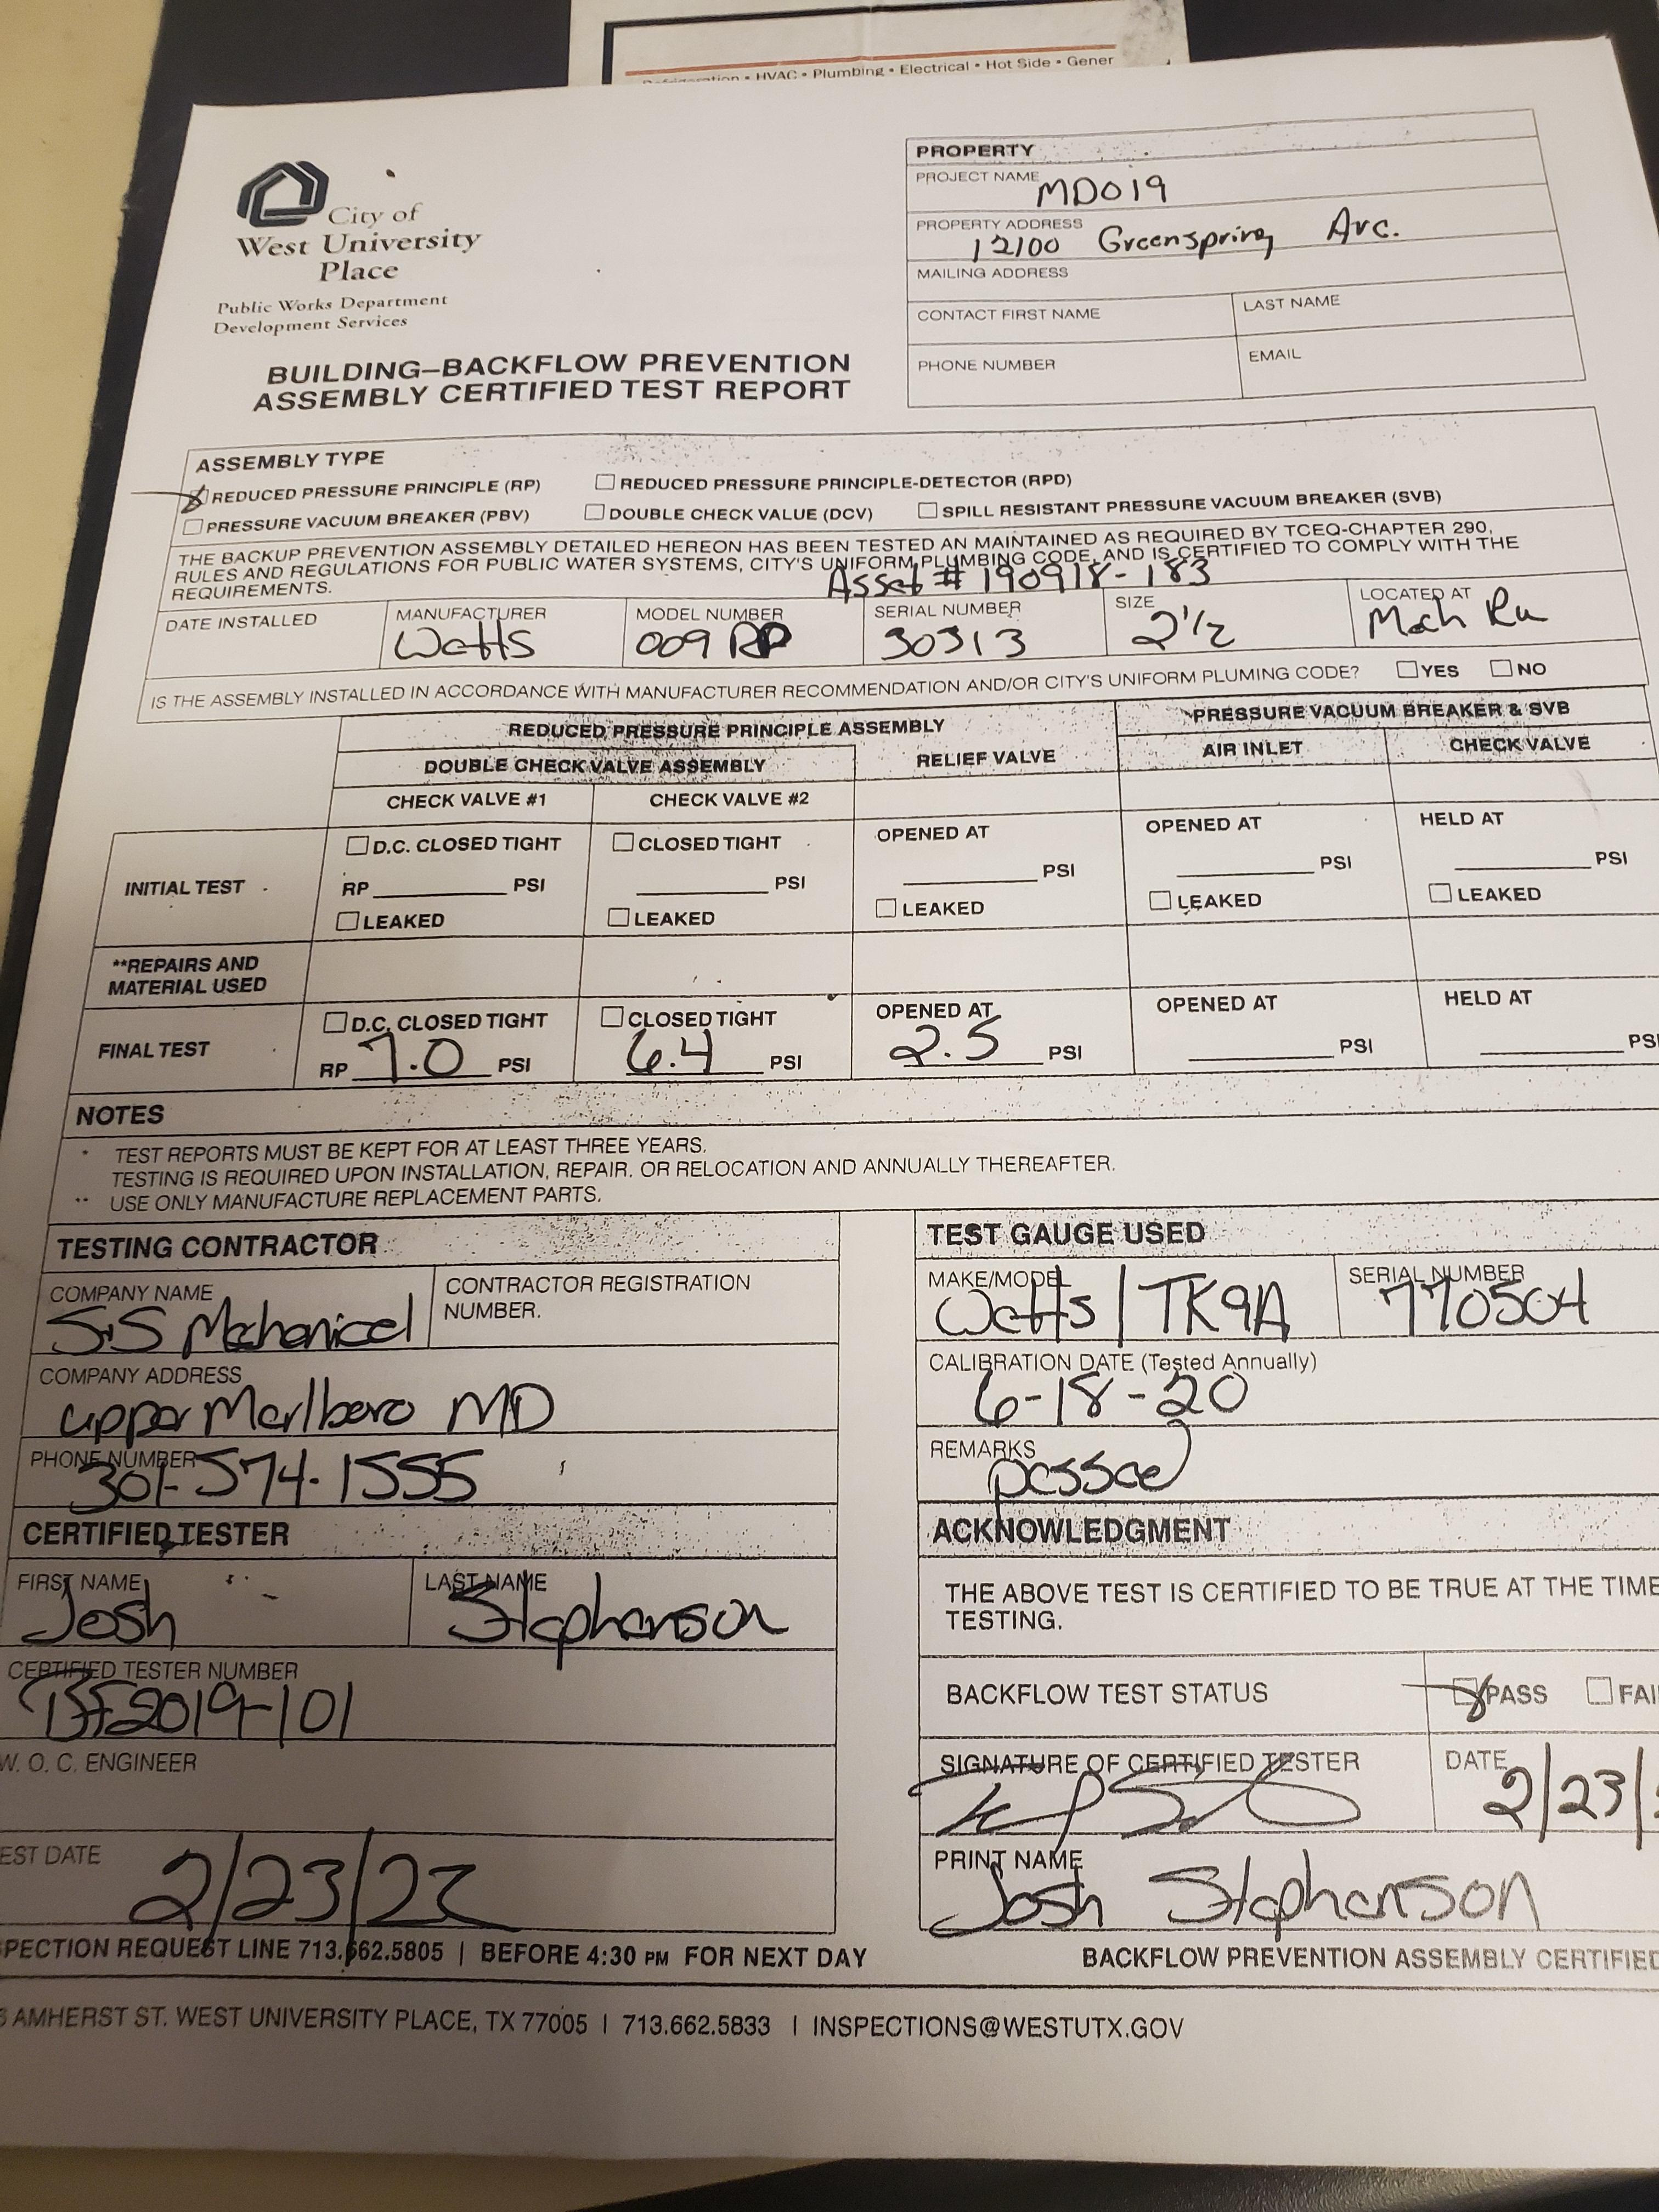 Refrigeration • HVAC • Plumbing • Electrical • Hot Side • Gener
City of
West University
Place
Public Works Department
Development Services
BUILDING–BACKFLOW PREVENTION
ASSEMBLY CERTIFIED TEST REPORT
PROPERTY
PROJECT NAME MD019
PROPERTY ADDRESS
12100 Greenspring Ave.
MAILING ADDRESS
CONTACT FIRST NAME LAST NAME
PHONE NUMBER EMAIL
ASSEMBLY TYPE
REDUCED PRESSURE PRINCIPLE (RP) REDUCED PRESSURE PRINCIPLE-DETECTOR (RPD)
PRESSURE VACUUM BREAKER (PBV) DOUBLE CHECK VALUE (DCV) SPILL RESISTANT PRESSURE VACUUM BREAKER (SVB)
THE BACKUP PREVENTION ASSEMBLY DETAILED HEREON HAS BEEN TESTED AN MAINTAINED AS REQUIRED BY TCEQ-CHAPTER 290,
RULES AND REGULATIONS FOR PUBLIC WATER SYSTEMS, CITY'S UNIFORM PLUMBING CODE, AND IS CERTIFIED TO COMPLY WITH THE
REQUIREMENTS.
Asset # 190918-183
DATE INSTALLED MANUFACTURER MODEL NUMBER SERIAL NUMBER SIZE LOCATED AT
Watts 009 RP 30313 2 1/2 Mech Rm
IS THE ASSEMBLY INSTALLED IN ACCORDANCE WITH MANUFACTURER RECOMMENDATION AND/OR CITY'S UNIFORM PLUMING CODE? YES NO
REDUCED PRESSURE PRINCIPLE ASSEMBLY PRESSURE VACUUM BREAKER & SVB
DOUBLE CHECK VALVE ASSEMBLY RELIEF VALVE AIR INLET CHECK VALVE
CHECK VALVE #1 CHECK VALVE #2
INITIAL TEST
D.C. CLOSED TIGHT CLOSED TIGHT OPENED AT OPENED AT HELD AT
RP PSI PSI PSI PSI PSI
LEAKED LEAKED LEAKED LEAKED LEAKED
**REPAIRS AND
MATERIAL USED
FINAL TEST
D.C. CLOSED TIGHT CLOSED TIGHT OPENED AT OPENED AT HELD AT
RP 7.0 PSI 6.4 PSI 2.5 PSI PSI PSI
NOTES
* TEST REPORTS MUST BE KEPT FOR AT LEAST THREE YEARS.
TESTING IS REQUIRED UPON INSTALLATION, REPAIR. OR RELOCATION AND ANNUALLY THEREAFTER.
** USE ONLY MANUFACTURE REPLACEMENT PARTS.
TESTING CONTRACTOR
COMPANY NAME
S&S Mechanical
CONTRACTOR REGISTRATION
NUMBER.
COMPANY ADDRESS
upper Marlboro MD
PHONE NUMBER
301-574-1555
CERTIFIED TESTER
FIRST NAME LAST NAME
Josh Stephenson
CERTIFIED TESTER NUMBER
BF2019-101
W. O. C. ENGINEER
EST DATE
2/23/22
TEST GAUGE USED
MAKE/MODEL SERIAL NUMBER
Watts / TK9A 770504
CALIBRATION DATE (Tested Annually)
6-18-20
REMARKS
passed
ACKNOWLEDGMENT
THE ABOVE TEST IS CERTIFIED TO BE TRUE AT THE TIME
TESTING.
BACKFLOW TEST STATUS PASS FAI
SIGNATURE OF CERTIFIED TESTER DATE
2/23/
PRINT NAME
Josh Stephenson
SPECTION REQUEST LINE 713.662.5805 | BEFORE 4:30 PM FOR NEXT DAY
BACKFLOW PREVENTION ASSEMBLY CERTIFIED
AMHERST ST. WEST UNIVERSITY PLACE, TX 77005 | 713.662.5833 | INSPECTIONS@WESTUTX.GOV